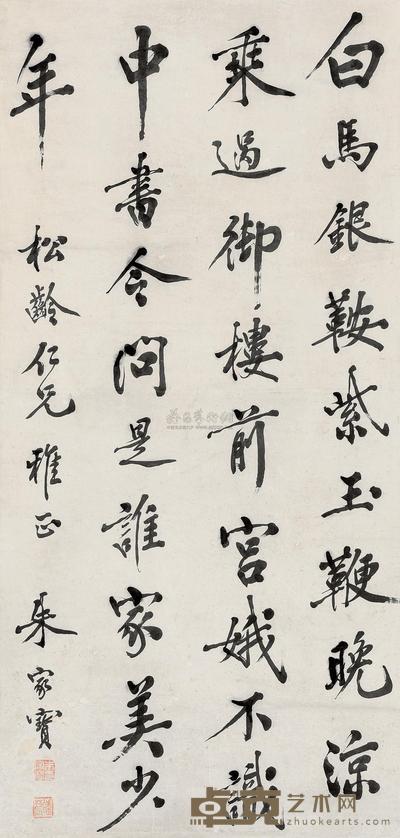 白馬銀鞍紫玉鞭晚涼
乘過御樓前宮娥不識
中書令問是誰家美少
年
松齡仁兄雅正
朱家寶
卓克艺术网